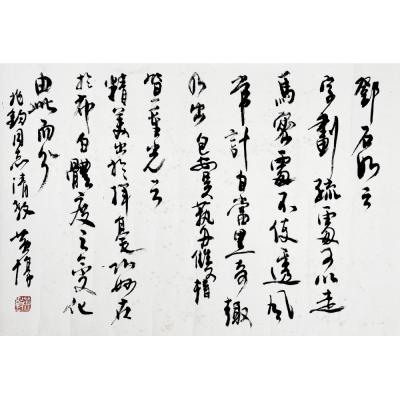 鄧石如云
字劃疏處可以走
馬密處不使透風
常計白當黑奇趣
乃出包安吳藝舟雙楫
笪重光云
精美出於揮毫巧妙在
於布白體度之變化
由此而分
兆鈞同志清教 黃惇